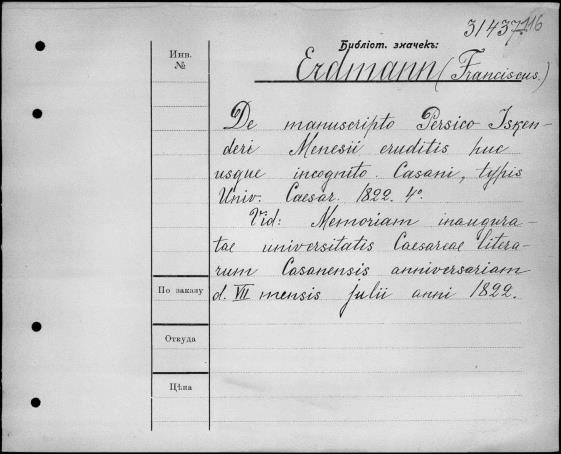 31437
116
Библіот. значекъ:
Инв.
№
Erdmann (Franciscus.)
De manuscripto Persico Isken-
deri Menesii eruditis huc
usque incognito. Casani, typis
Univ. Caesar. 1822. 4º.
Vid: Memoriam inaugura-
tae universitatis Caesareae litera-
rum Casanensis anniversariam
d. VII mensis julii anni 1822.
По заказу
Откуда
Цѣна